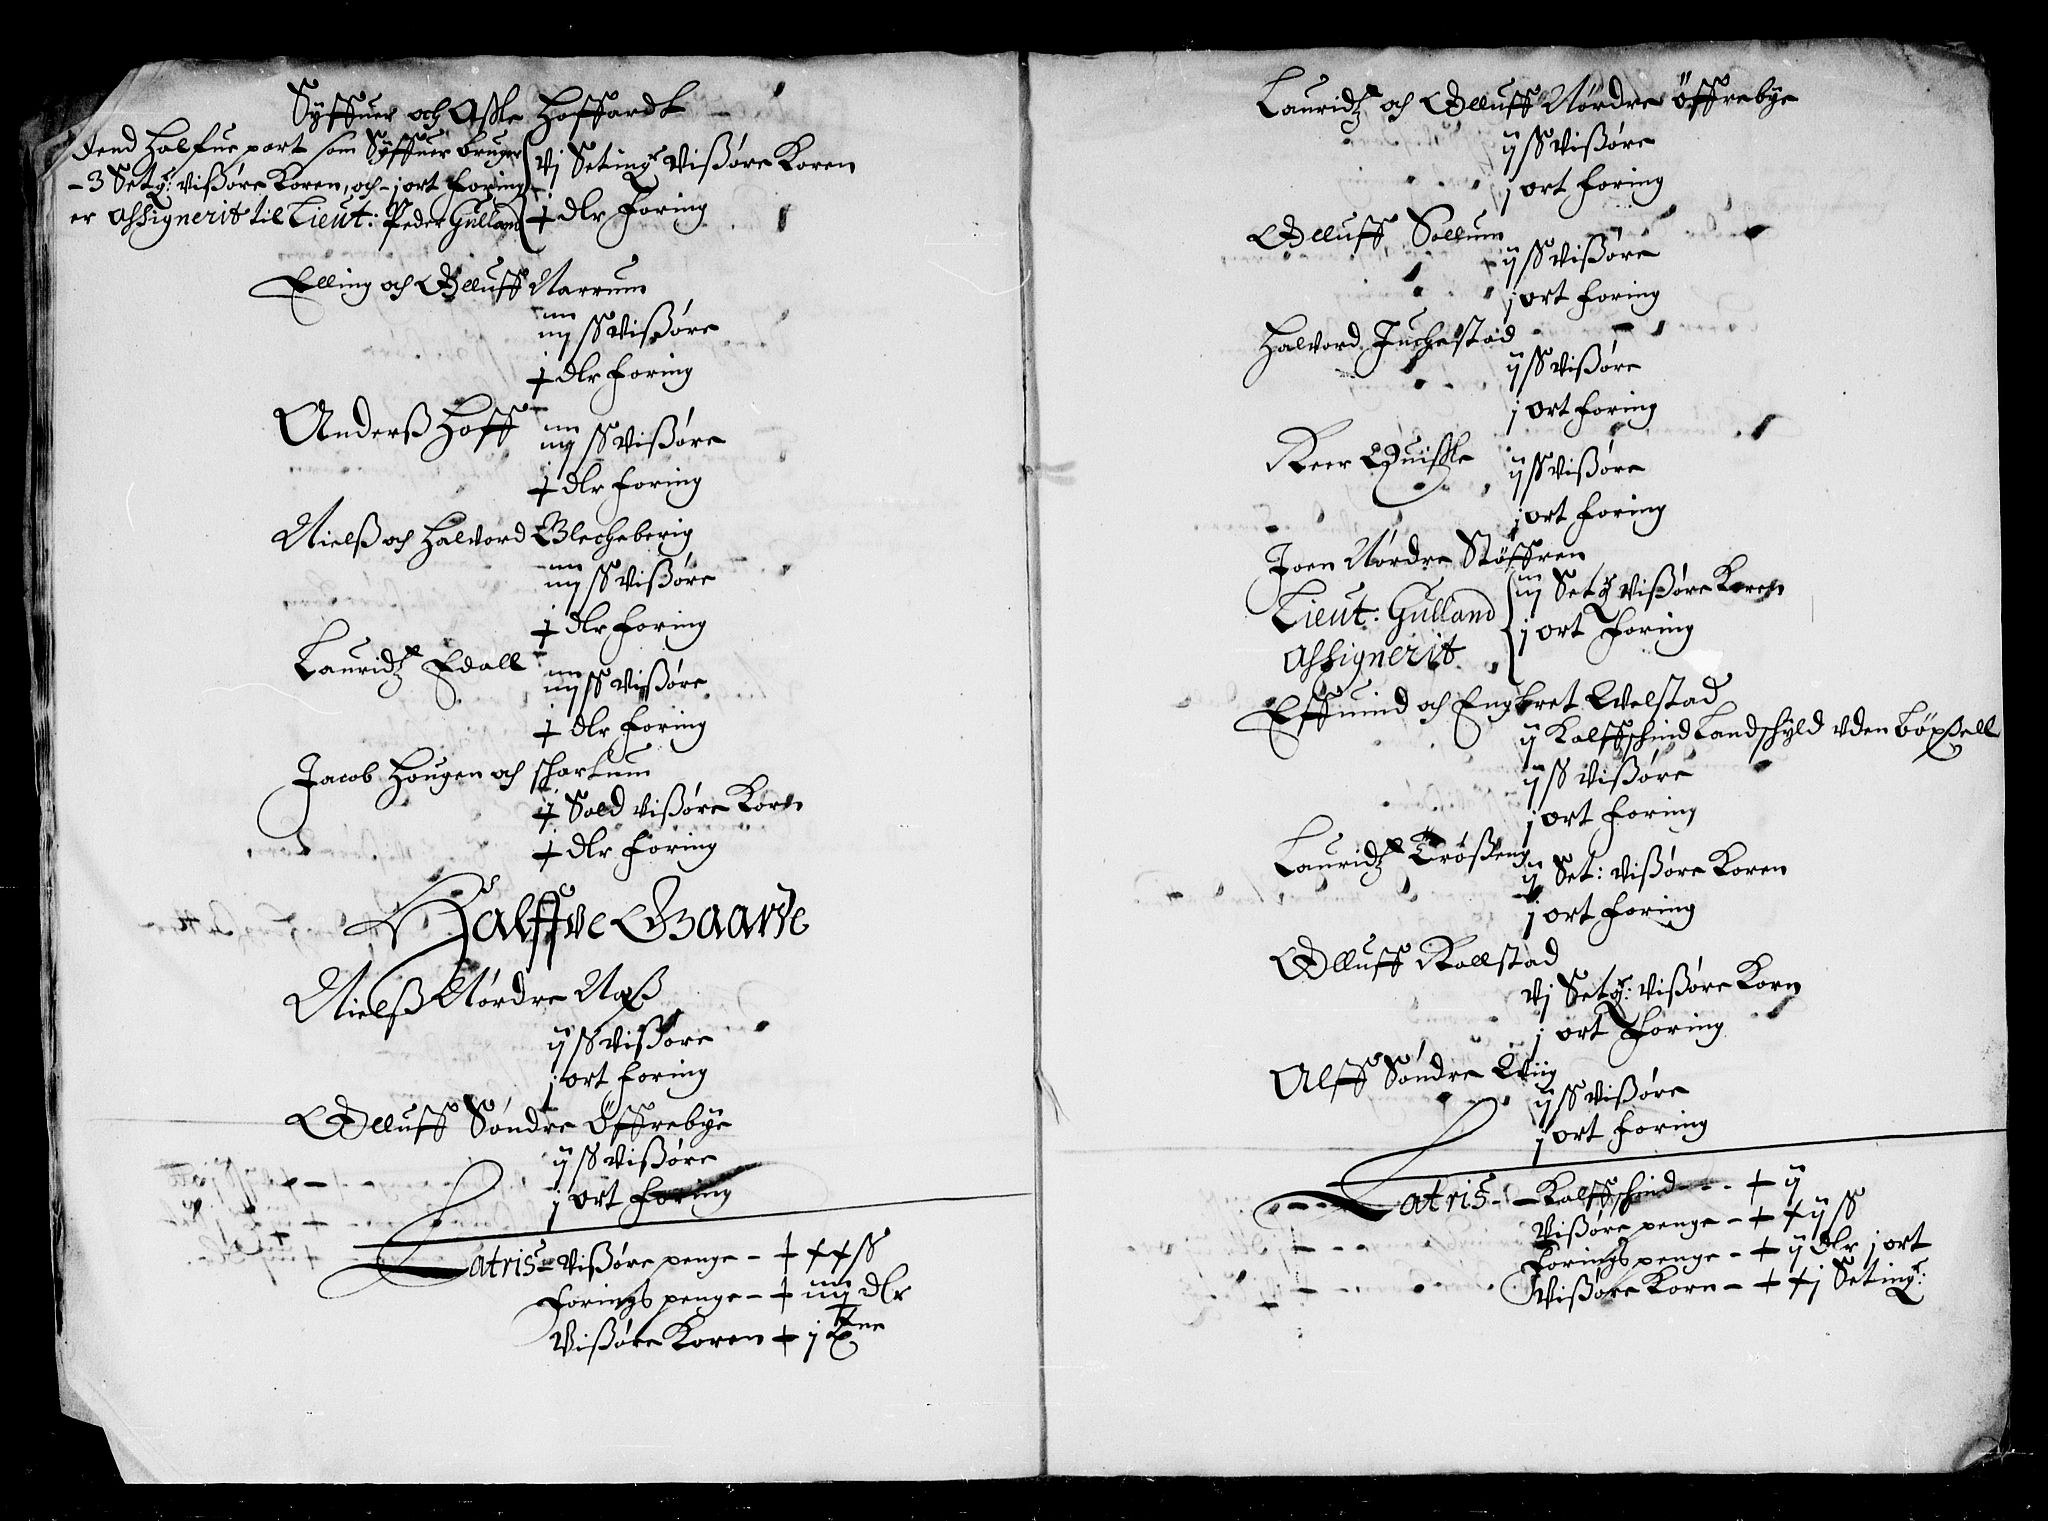 Syffuer och Aßle Hoffardt
Dend halfue part som Syffuer bruger
- 3 Setg: Vißøre Koren, och - j ort Foring
er Assignerit til Lieut: Peder Gulland
vj Seting: Vißøre Koren
½ dlr Foring
Elling och Olluff Narrum
iiij ß Vißøre
½ dlr Foring
Anderß Hoff
iiij ß Vißøre
½ dlr Foring
Nielß och Halvord Blecheberig
iiij ß Vißøre
½ dlr Foring
Lauridtz Edall
iiij ß Vißøre
½ dlr Foring
Jacob Hougen och Schartum
½ Sold Vißøre Korn
½ dlr Foring
Halffve Gaarde
Nielß Nørdre Næß
ij ß Vißøre
j ort Foring
Olluff Søndre Öffrebye
ij ß Vißøre
j ort Foring
Lateris - Vißøre penge - + x x ß
Forings penge - + iiij dlr
Vißøre Koren + j
Lauridtz och Olluff Nørdre Öffrebye
ij ß Vißøre
j ort Foring
Olluff Sollum
ij ß Vißøre
j ort Foring
Halvord Juchestad
ij ß Vißøre
j ort Foring
Peer Quißle
ij ß Vißøre
j ort Foring
Joen Nørdre Støffren
Lieut: Gulland
Assignerit
iij Setg Vißøre Koren
j ort Foring
Effuind och Engbret Welstad
ij Kalffschind Landschyld vden böxßell
ij ß Vißøre
j ort Foring
Lauridtz Trößeng
ij Set: Vißøre Koren
j ort Foring
Olluff Rollstad
vj Setg: Vißøre Korn
j ort Foring
Alff Søndre Wiig
ij ß Vißøre
j ort Foring
Lateris - Kalffschind - - - + ij
Vißøre penge - + xij ß
Forings penge - + ij dlr j ort
Vißøre Korn - + xj Seting: